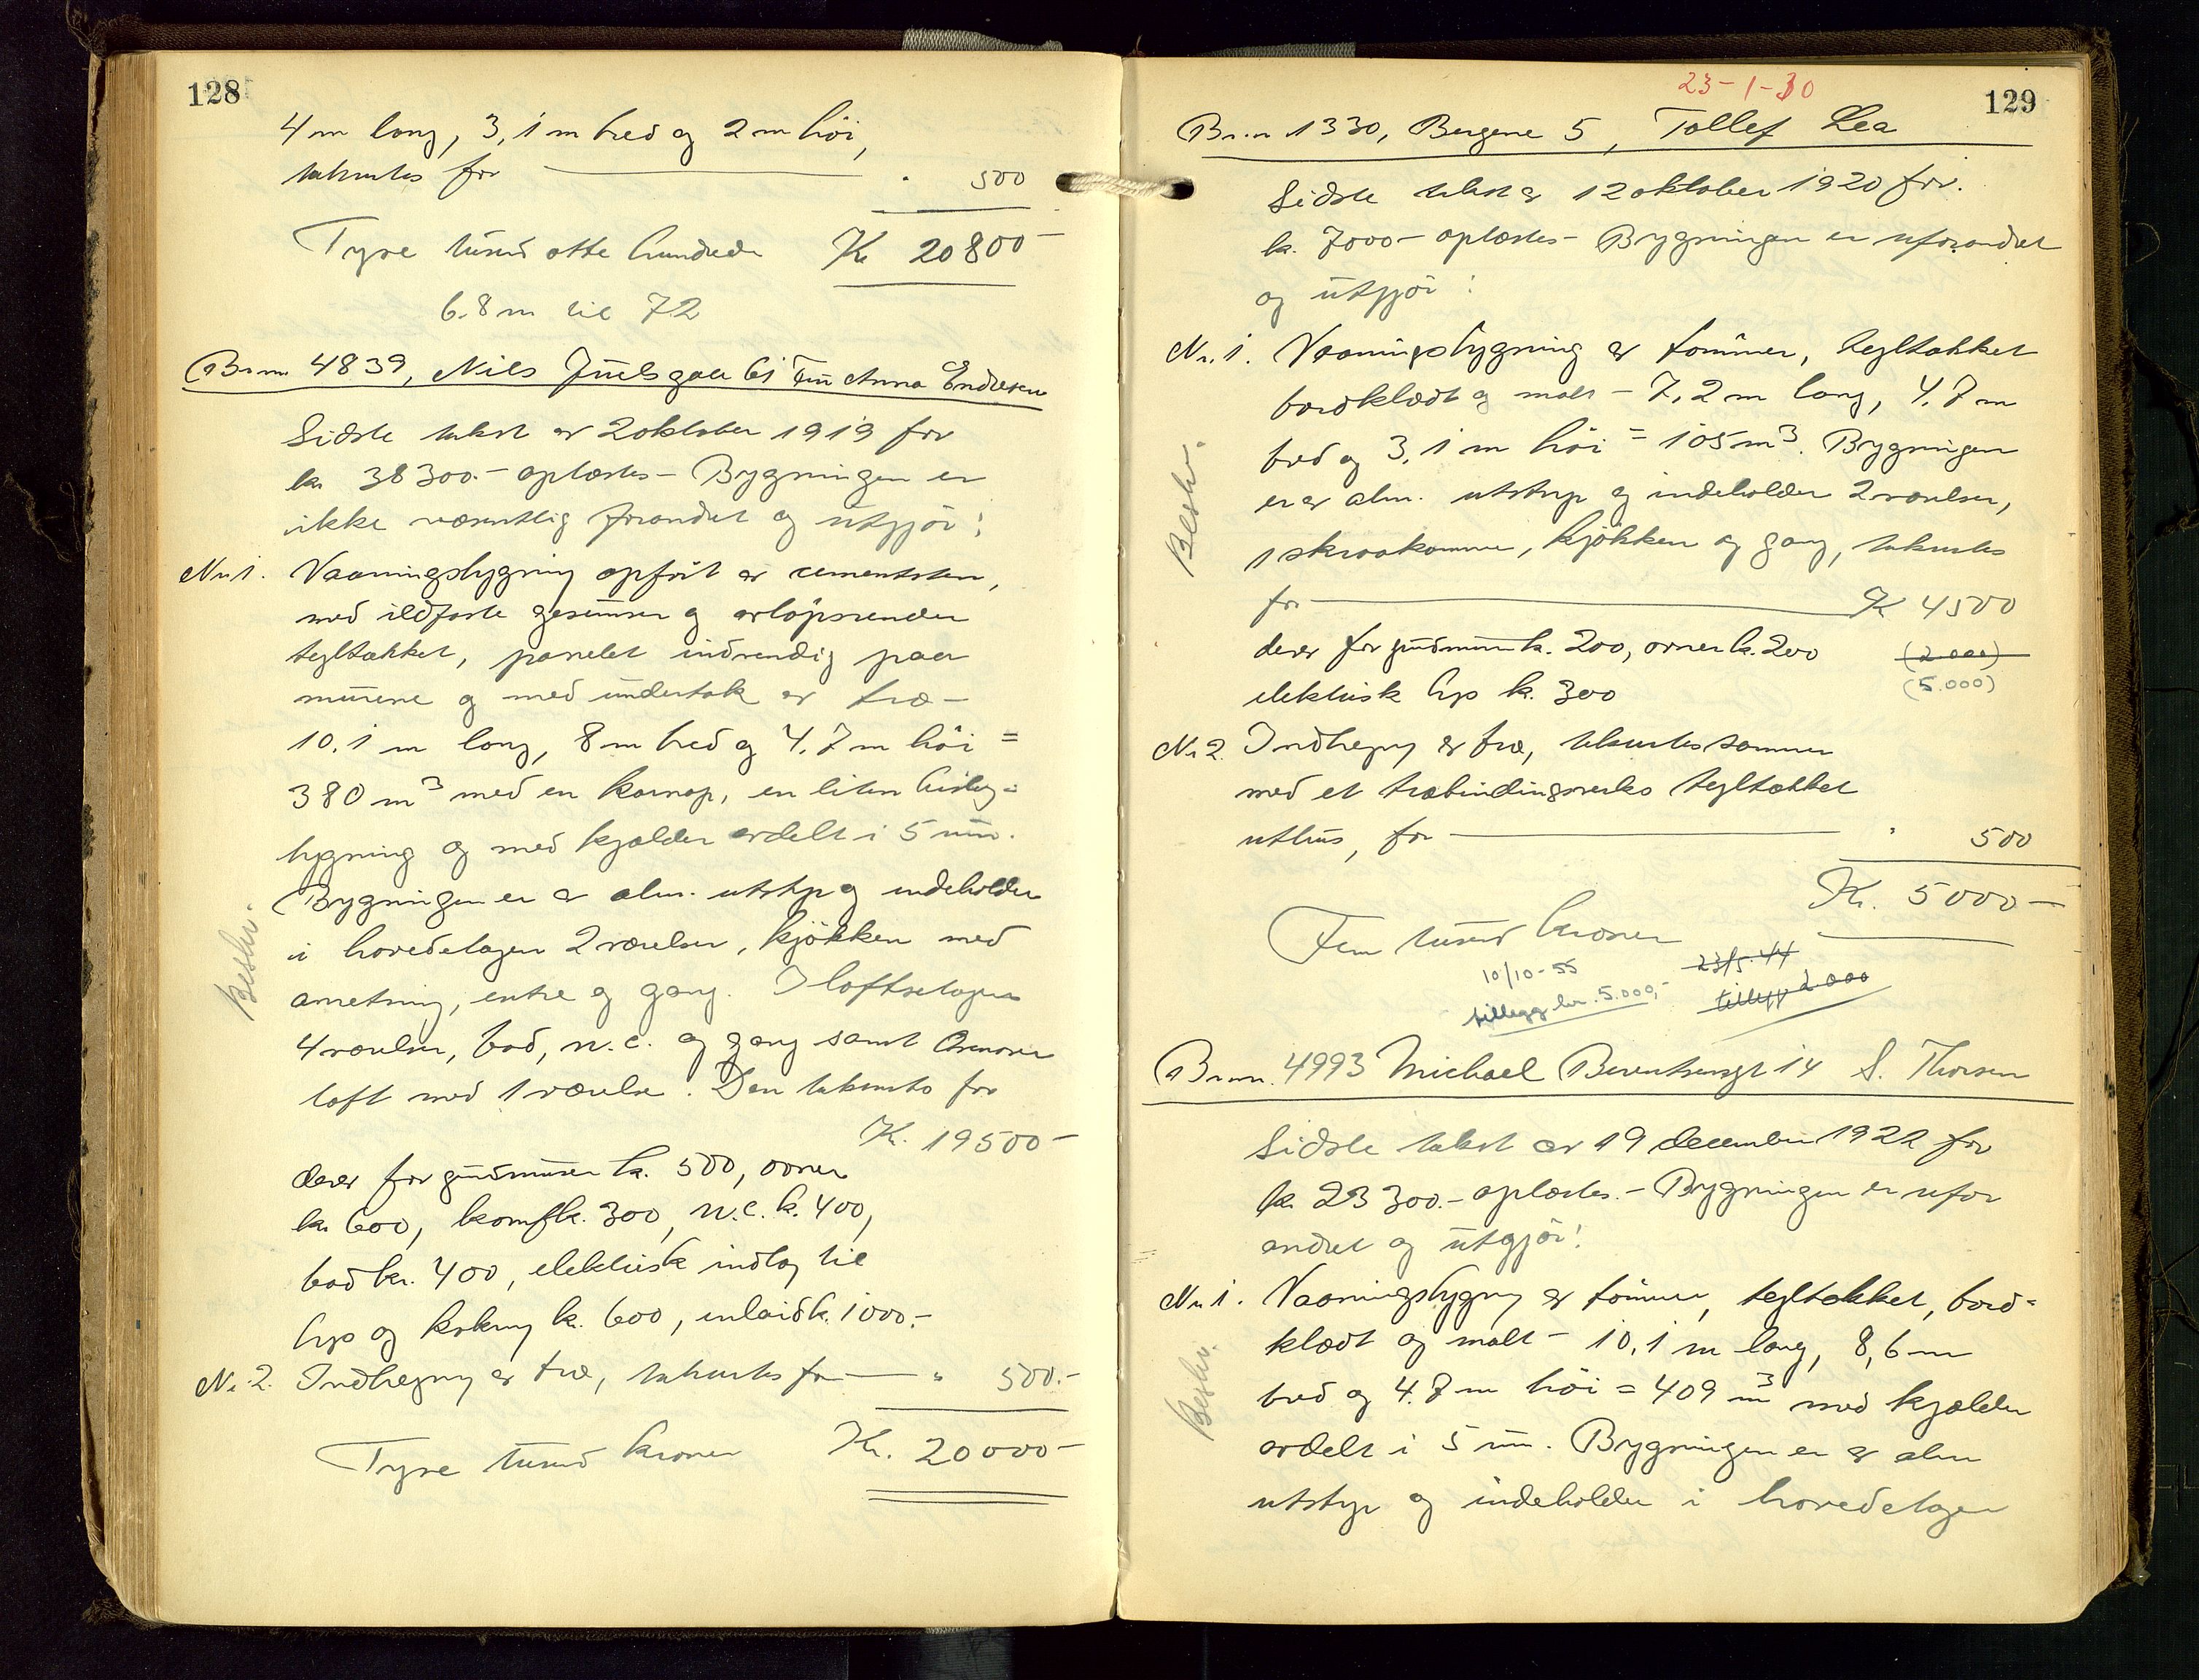 128
4 m lang, 3,1 m bred og 2 m höi,
takseres for " 500
Tyve tusind otte hundrede Kr 20800-
6.8 m til 72
Br.nr 4839, Nils Juelsgate 61 Fru Anna Endresen
Sidste takst av 2 oktober 1919 for
kr. 38300.- oplæstes - Bygningen er
ikke væsentlig forandret og utgjör:
Nr. 1. Vaaningsbygning opfört av cementsten,
med ildfaste gesimser og avlöpsrender
tegltækket, panelet indvendig paa
murene og med undertak av træ -
10,1 m lang, 8 m bred og 4,7 m höi =
380 m³ med en karnap, en liten bislag-
bygning og med kjælder avdelt i 5 rum.
Bygningen er av alm. utstyr og indeholder
i hovedetagen 2 værelser, kjökken med
anretning, entre og gang. I loftsetagen
4 værelser, bad, w.c. og gang samt övre
loft med 1 værelse. Den takseres for
Kr. 19500-
derav for grundmurer kr. 500, ovner
kr 600, komf kr. 300, w.c. kr. 400,
bad kr. 400, elektrisk indlag til
lys og kokning kr. 600, inlaid kr. 1000.-
Nr. 2. Indhegning av træ, takseres for " 500.-
Tyve tusind kroner Kr. 20000-
Beskr.
129
23-1-30
Br.nr 1330, Bergene 5, Tollef Lea
Sidste takst av 12 oktober 1920 for
kr. 7000- oplæstes - Bygningen er uforandret
og utgjör:
Nr. 1. Vaaningsbygning av tömmer, tegltækket
bordklædt og malt - 7,2 m lang, 4,7 m
bred og 3,1 m höi = 105 m³. Bygningen
er av alm. utstyr og indeholder 2 værelser,
1 skraakammer, kjökken og gang, takseres
for Kr 4500
derav for grundmur kr. 200, ovner kr. 200 (2.000)
elektrisk lys kr. 300 (5.000)
Nr 2. Indhegning av træ, takseres sammen
med et træbindingsverks tegltækket
uthus, for " 500
Kr. 5000-
Fem tusind kroner
10/10-55 23/5.44
tillegg kr. 5.000,- tillegg 2.000
Beskr.
Br.nr. 4993 Michael Berentsensgt 14 S. Thorsen
Sidste takst av 19 december 1922 for
kr 23300.- oplæstes. - Bygningen er ufor
andret og utgjör:
Nr. 1. Vaaningsbygning av tömmer, tegltækket, bord-
klædt og malt - 10,1 m lang, 8,6 m
bred og 4.7 m höi = 409 m³ med kjælder
avdelt i 5 rum. Bygningen er av alm
utstyr og indeholder i hovedetagen
Beskr.